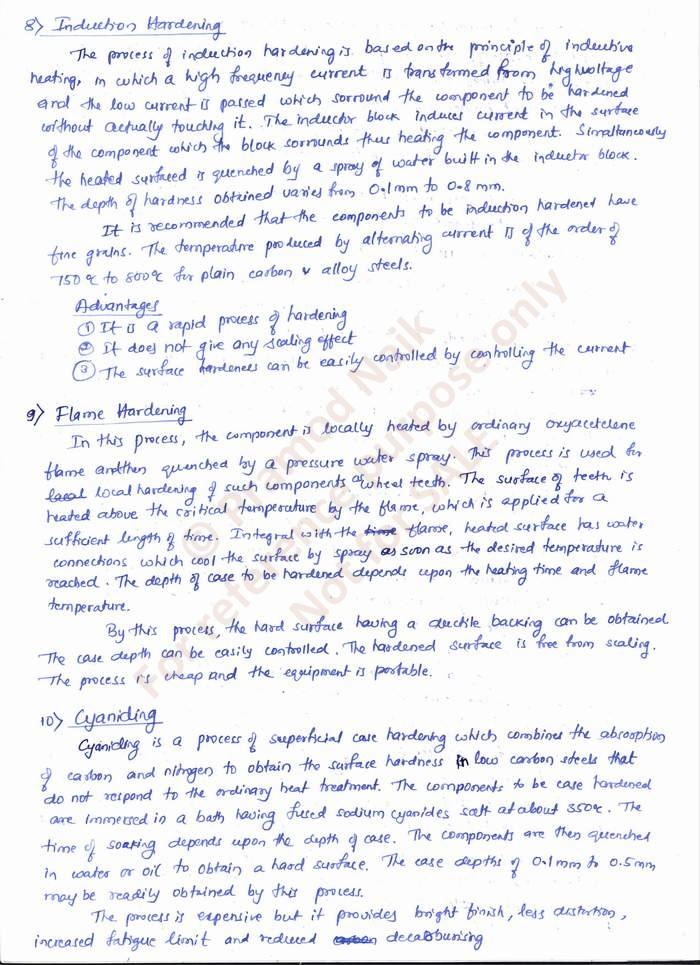 8) Induction Hardening
The process of induction hardening is based on the principle of inductive
heating, in which a high frequency current is transformed from highvoltage
and the low current is passed which sorround the component to be hardened
without actually touching it. The inductor block induces current in the surface
of the component which the block sorrounds thus heating the component. Simultaneously
the heated surfaced is quenched by a spray of water built in the inductor block.
The depth of hardness obtained varies from 0.1mm to 0.8 mm.
It is recommended that the components to be induction hardened have
fine grains. The temperature produced by alternating current is of the order of
750°c to 800°c for plain carbon & alloy steels.
Advantages
① It is a rapid process of hardening
② It does not give any scaling effect
③ The surface hardenees can be easily controlled by controlling the current
9) Flame Hardening
In this process, the component is locally heated by ordinary oxyacetelene
flame and then quenched by a pressure water spray. This process is used for
local local hardening of such components as wheel teeth. The surface of teeth is
heated above the critical temperature by the flame, which is applied for a
sufficient length of time. Integral with the time flame, heated surface has water
connections which cool the surface by spray as soon as the desired temperature is
reached. The depth of case to be hardened depends upon the heating time and flame
temperature.
By this process, the hard surface having a ductile backing can be obtained.
The case depth can be easily controlled. The hardened surface is free from scaling.
The process is cheap and the equipment is portable.
10) Cyaniding
Cyaniding is a process of superficial case hardening which combines the absorption
of carbon and nitrogen to obtain the surface hardness in low carbon steels that
do not respond to the ordinary heat treatment. The components to be case hardened
are immersed in a bath having fused sodium cyanides salt at about 350°c. The
time of soaking depends upon the depth of case. The components are then quenched
in water or oil to obtain a hard surface. The case depths of 0.1mm to 0.5mm
may be readily obtained by this process.
The process is expensive but it provides bright finish, less distortion,
increased fatigue limit and reduced decarburising
© Pramod Naik
For reference purpose only
Not for SALE